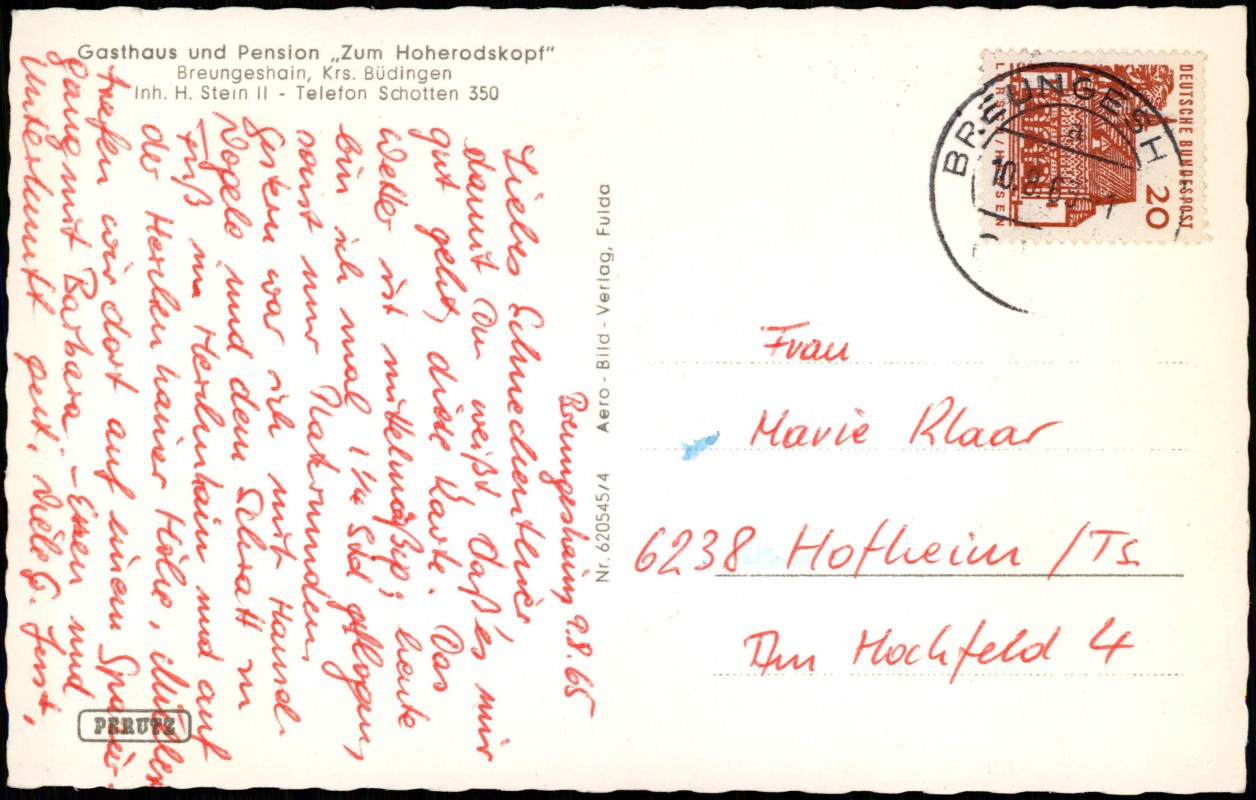 Gasthaus und Pension „Zum Hoherodskopf"
Breungeshain, Krs. Büdingen
Inh. H. Stein II - Telefon Schotten 350
Breungeshain, 9.8.65
Liebes
damit Du weißt daß es mir
gut geht, diese Karte. Das
Wetter ist mittelmäßig, heute
bin ich mal 1 1/4 Std geflogen,
sonst nur Platzrunden.
Gestern war ich mit Hansel
Vogele und dem Schratt zu
Fuß im Herchenhain und auf
der Herchenhainer Höhe, Müller
trafen wir dort auf einem Spazier-
gang mit Barbara. - Essen und
Unterkunft gut. Viele G.
Nr. 620545/4 Aero - Bild - Verlag, Fulda
PERUTZ
DEUTSCHE BUNDESPOST
20
LORSCH/HESSEN
BREUNGESH
10.8.65
Frau
Marie Klaar
6238 Hofheim /Ts
Am Hochfeld 4